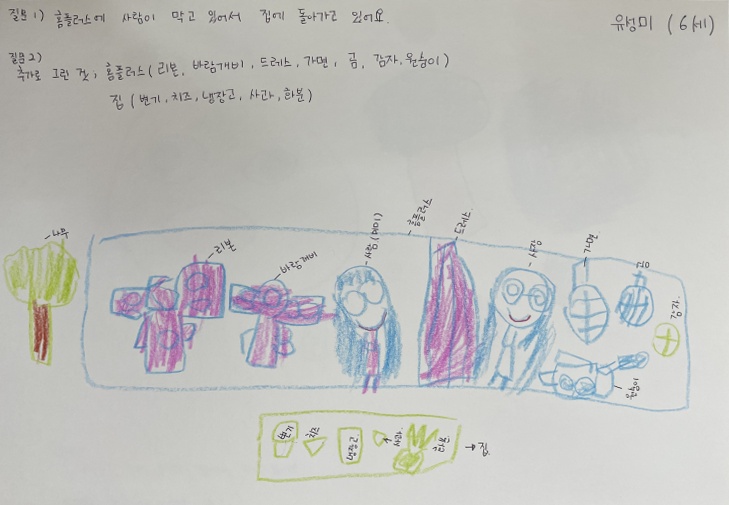 질문1) 홈플러스에 사람이 막고 있어서 집에 돌아가고 있어요.
유성미 (6세)
질문2)
추가로 그린 것; 홈플러스(리본, 바람개비, 드레스, 가면, 곰, 감자, 원숭이)
집 (변기, 치즈, 냉장고, 사과, 화분)
나무
리본
바람개비
홈플러스
드레스.
사람
가면
곰
감자.
원숭이
변기
치즈
냉장고
사과
화분
→ 집